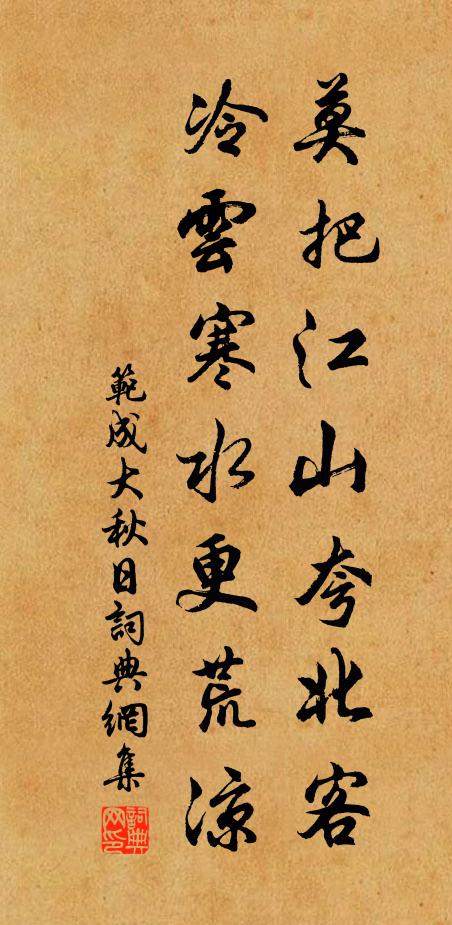 莫把江山夸北客
冷雲寒水更荒涼
範成大秋日詞典網集
詞典網印